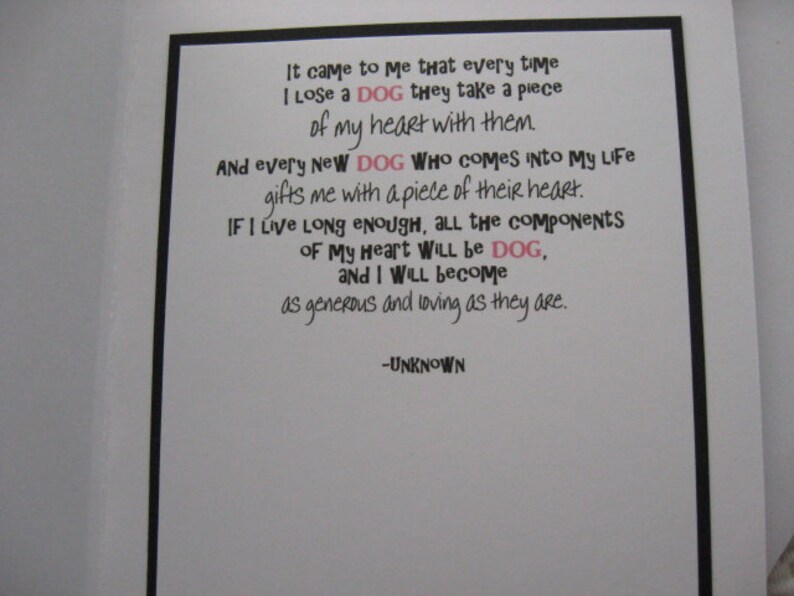 It came to me that every time
I lose a DOG they take a piece
of my heart with them.
And every new DOG who comes into my life
gifts me with a piece of their heart.
If I live long enough, all the components
of my heart will be DOG,
and I will become
as generous and loving as they are.
-Unknown